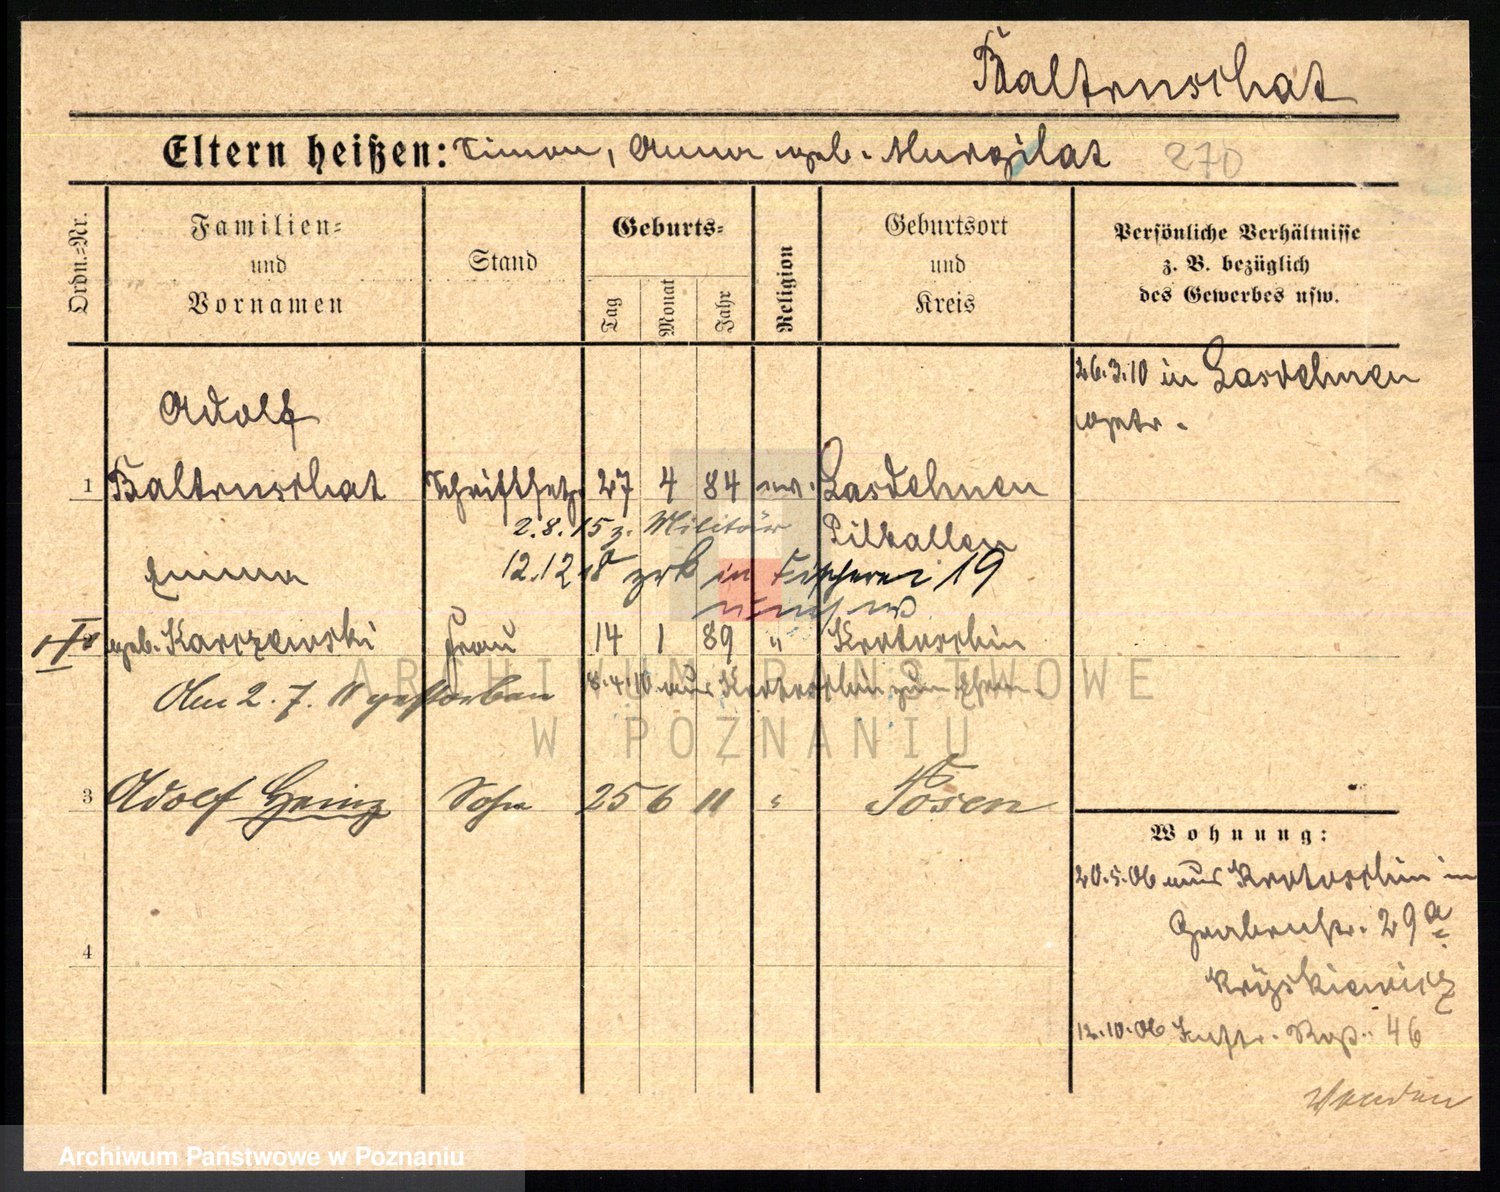 Baltruschat
Eltern heißen: Simon, Anna geb. Murgilat 270
Ordn.=Nr.
Familien=
und
Vornamen
Stand
Geburts=
Tag
Monat
Jahr
Religion
Geburtsort
und
Kreis
Persönliche Verhältnisse
z. B. bezüglich
des Gewerbes usw.
26.3.10 in Lasdehnen
getr.
Adolf
1 Baltruschat Schriftsetz. 27 4 84 ev. Lasdehnen
2.8.15 z. Militär Pillkallen
Emma
12.12 18 zrk in Fischerei 19
geb. Karczewski Frau 14 1 89 " Krotoschin
Am 2. 7. 11 gestorben 8.4.10 aus Krotoschin zum Ehem.
3 Adolf Heinz Sohn 25 6 11 " Posen
4
Wohnung:
20.5.06 aus Krotoschin in
Grabenstr. 29a
Kryskiewicz
12.10.06 46
ARCHIWUM PAŃSTWOWE
W POZNANIU
Archiwum Państwowe w Poznaniu